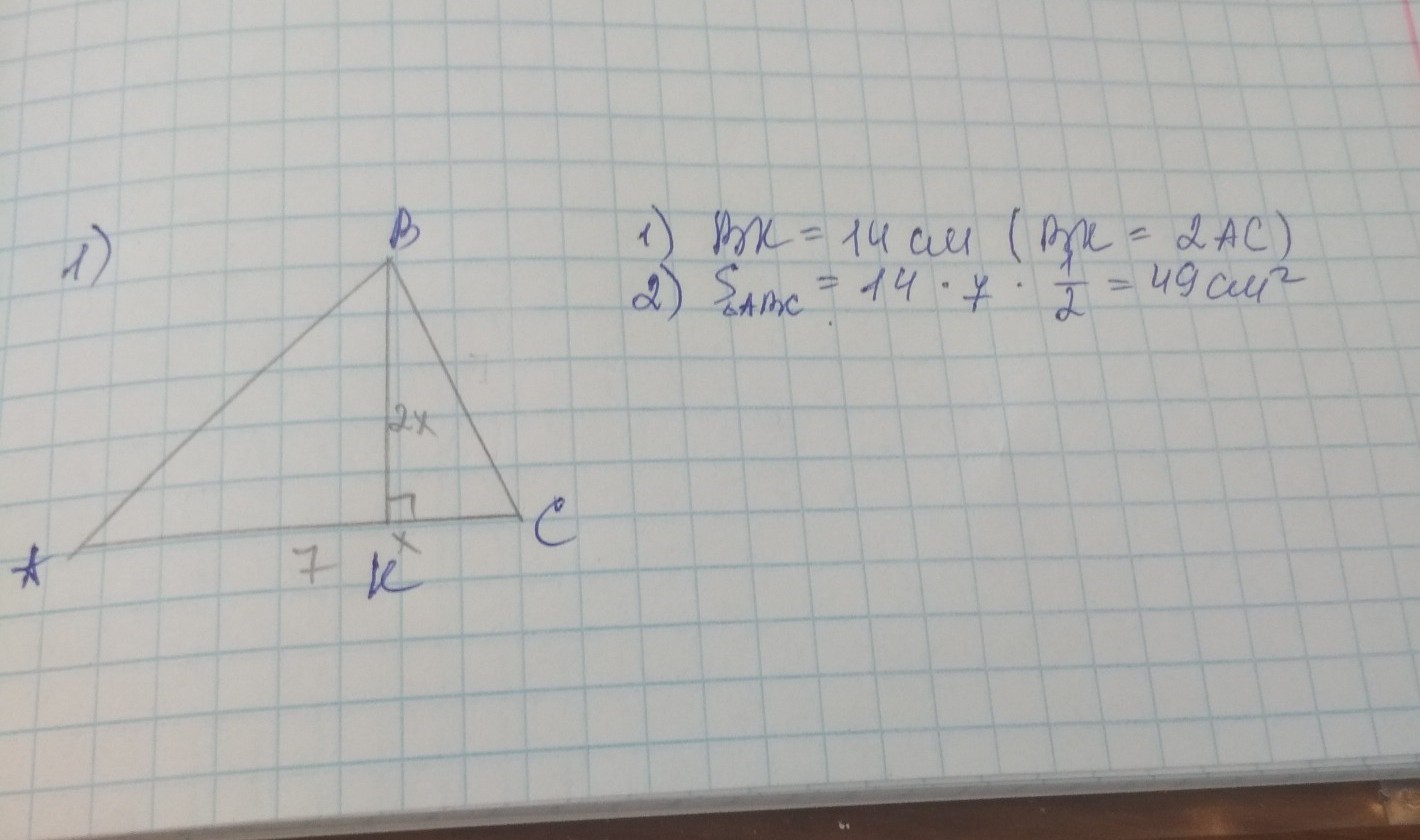 1)
B
2x
A
7
K
x
C
1) BK = 14 см (BK = 2AC)
2) S△ABC = 14 · 7 · 1/2 = 49 см²